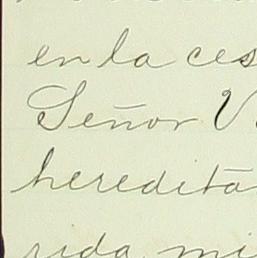 en la ces
Señor V
heredita
rida mi